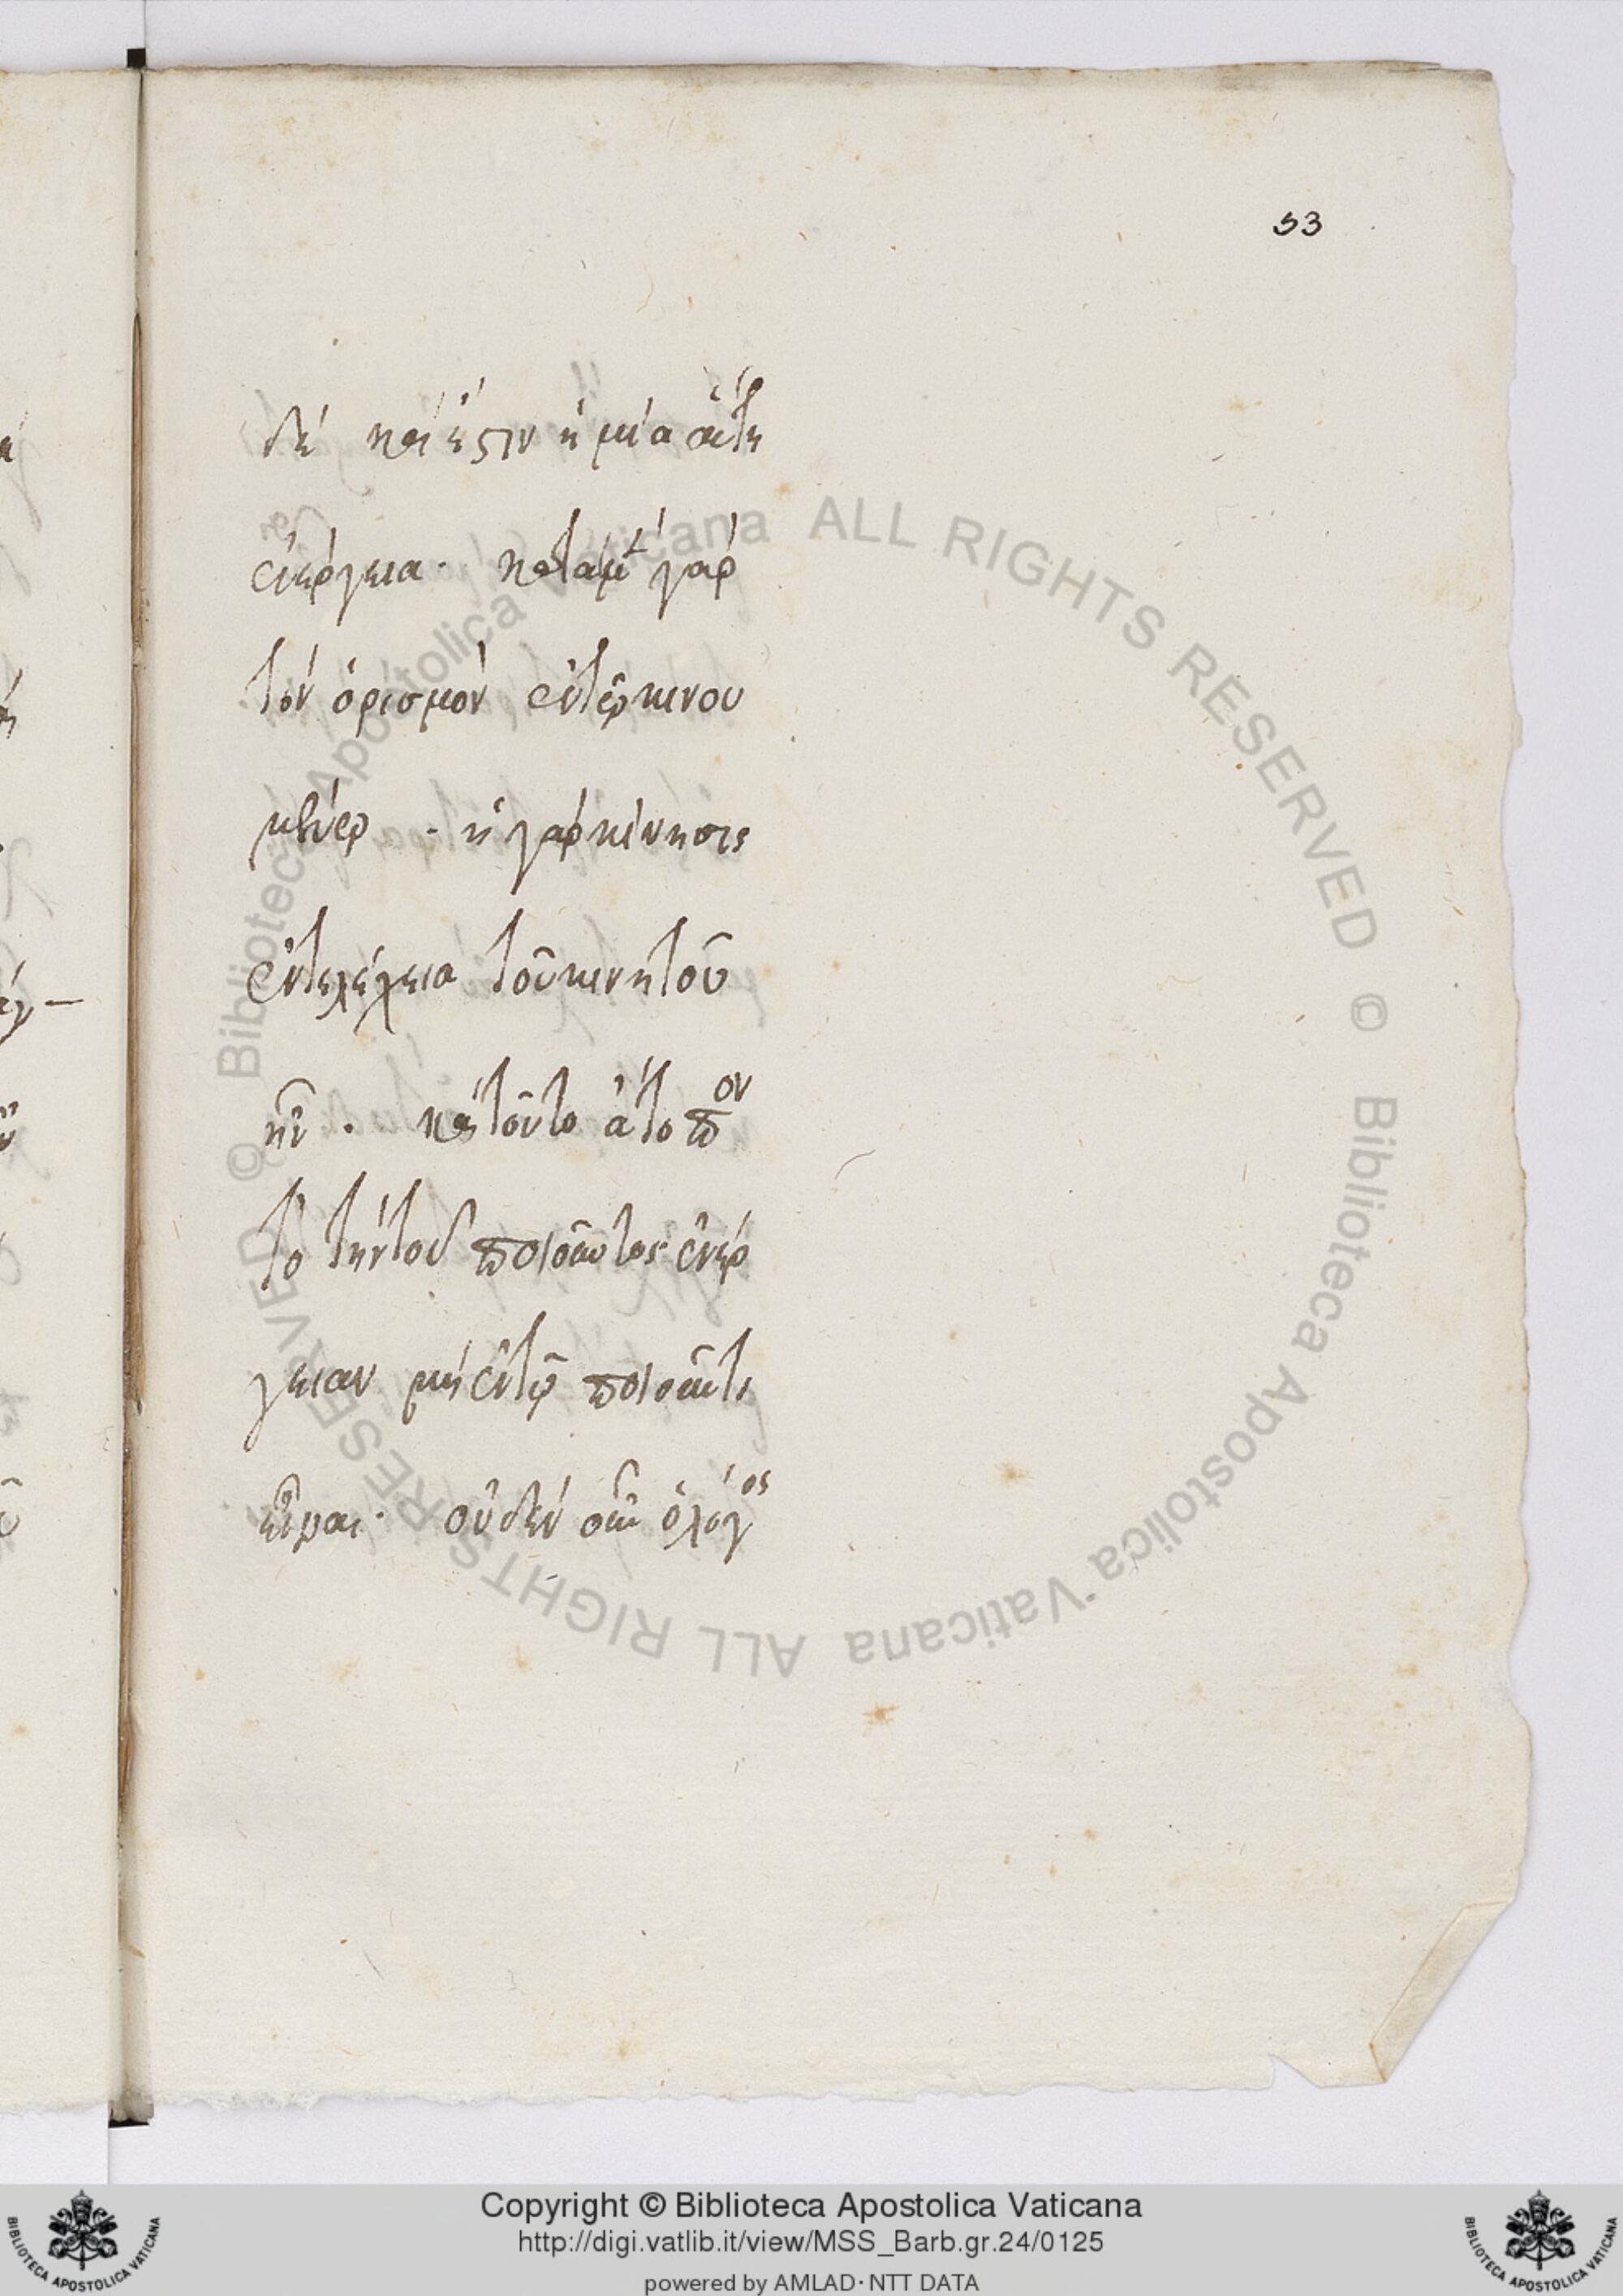 53
δέ καί ἐστιν ἡ μία αὕτη
ἐνέργεια. κατὰ μ γὰρ
τόν ὁρισμόν ἐν τῷ κινου
μένῳ. ἡ γάρ κίνησις
ἐντελέχεια τοῦ κινητοῦ
ἦν. καὶ τοῦτο ἄτοπον
τὸ τήν τοῦ ποιοῦντος ἐνέρ
γειαν μή ἐν τῷ ποιοῦντι
εἶναι. οὐδέν οὖν ὁ λόγος
© Biblioteca Apostolica Vaticana ALL RIGHTS RESERVED
© Biblioteca Apostolica Vaticana ALL RIGHTS RESERVED
Copyright © Biblioteca Apostolica Vaticana
http://digi.vatlib.it/view/MSS_Barb.gr.24/0125
powered by AMLAD·NTT DATA
BIBLIOTECA APOSTOLICA VATICANA
BIBLIOTECA APOSTOLICA VATICANA